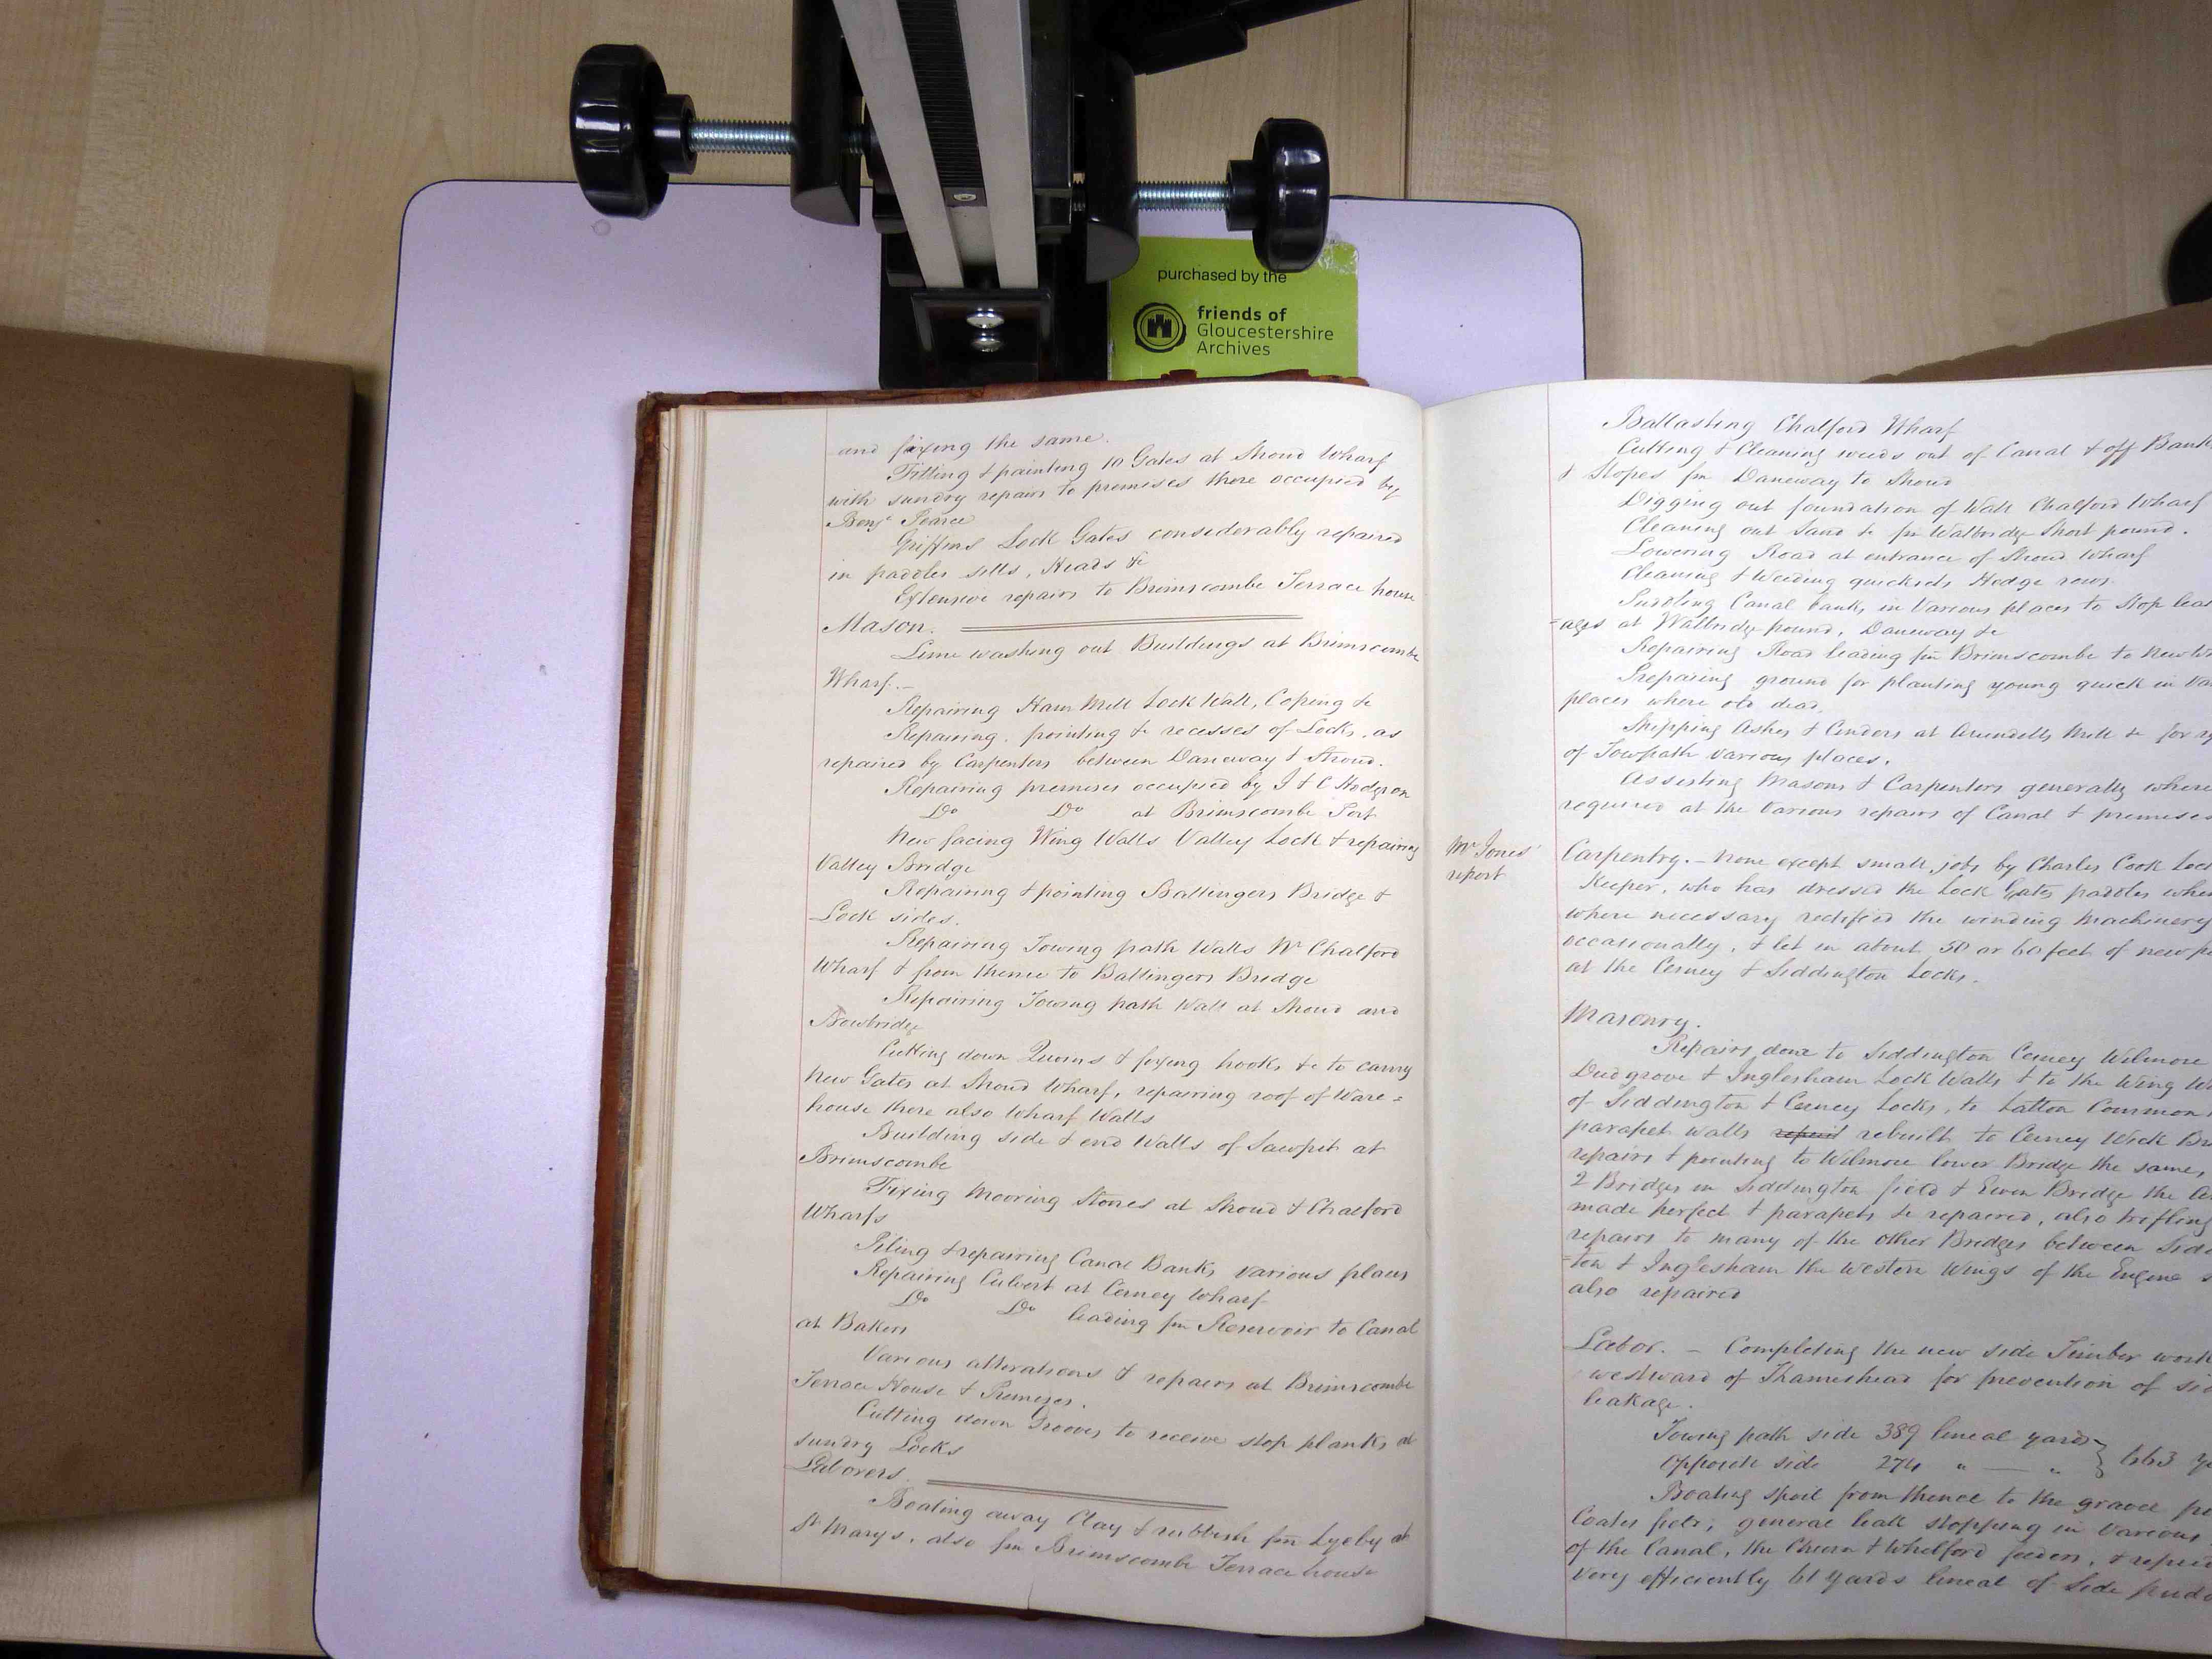 purchased by the
friends of
Gloucestershire
Archives
and fixing the same.
Fitting & painting 10 Gates at Stroud Wharf
with sundry repairs to premises there occupied by
Benjn Pearce
Griffins Lock Gates considerably repaired
in paddles sills, Heads &c
Extensive repairs to Brimscombe Terrace house
Mason.
Lime washing out Buildings at Brimscombe
Wharf.—
Repairing Ham Mill Lock Wall, Coping &c
Repairing, pointing &c recesses of Locks, as
repaired by Carpenters between Daneway & Stroud.
Repairing premises occupied by J & C Hodgson
Do Do at Brimscombe Port
New facing Wing Walls Valley Lock & repairing
Valley Bridge
Repairing & pointing Ballingers Bridge &
Lock sides.
Repairing Towing path Walls Nr Chalford
Wharf & from thence to Ballingers Bridge
Repairing Towing path Wall at Stroud and
Bowbridge
Cutting down Quoins & fixing hooks &c to carry
New Gates at Stroud Wharf, repairing roof of Ware=
house there also Wharf Walls
Building side & end Walls of Sawpit at
Brimscombe
Fixing Mooring Stones at Stroud & Chalford
Wharfs
Piling & repairing Canal Banks various places
Repairing Culvert at Cerney Wharf
Do Do leading fm Reservoir to Canal
at Bakers
Various alterations & repairs at Brimscombe
Terrace House & Premises.
Cutting down Grooves to receive stop planks at
sundry Locks
Laborers
Boating away Clay & rubbish fm Lyeby at
St Marys, also fm Brimscombe Terrace house
Ballasting Chalford Wharf
Cutting & Cleaning weeds out of Canal & off Bank
& Slopes fm Daneway to Stroud
Digging out foundation of Wall Chalford Wharf
Cleaning out Sand &c fm Walbridge Short pound.
Lowering Road at entrance of Stroud Wharf
Cleaning & Weeding quicksets Hedge rows
Puddling Canal banks in Various places to Stop leak
-ages at Walbridge pound, Daneway &c
Repairing Road leading fm Brimscombe to New
Preparing ground for planting young quick in Va
places where old dead.
Shipping Ashes & Cinders at Arundells Mill &c for
of Towpath various places.
Assisting Masons & Carpenters generally where
required at the various repairs of Canal & premises
Mr Jones'
report
Carpentry. — None except small jobs by Charles Cook Lock
Keeper, who has dressed the Lock Gates paddles when
where necessary rectified the winding Machinery
occasionally, & let in about 50 or 60 feet of new
at the Cerney & Siddington Locks.
Masonry.
Repairs done to Siddington Cerney Wilmore
Dudgrove & Inglesham Lock Walls & to the Wing W
of Siddington & Cerney Locks, to Latton Common
parapet walls repaird rebuilt to Cerney Wick Br
repairs & pointing to Wilmore lower Bridge the same,
2 Bridges in Siddington field & Ewen Bridge the
made perfect & parapets &c repaired, also trifling
repairs to many of the other Bridges between Sid
-ton & Inglesham the Western Wings of the Engine
also repaired
Labor. — Completing the new side Timber work
westward of Thameshead for prevention of si
leakage.
Towing path side 389 lineal yards
Opposite side 274 " — " } 663 y
Boating spoil from thence to the gravel
Coates field, general leak stopping in various
of the Canal, the Churn & Whelford feeders, &
very efficiently 61 yards lineal of side